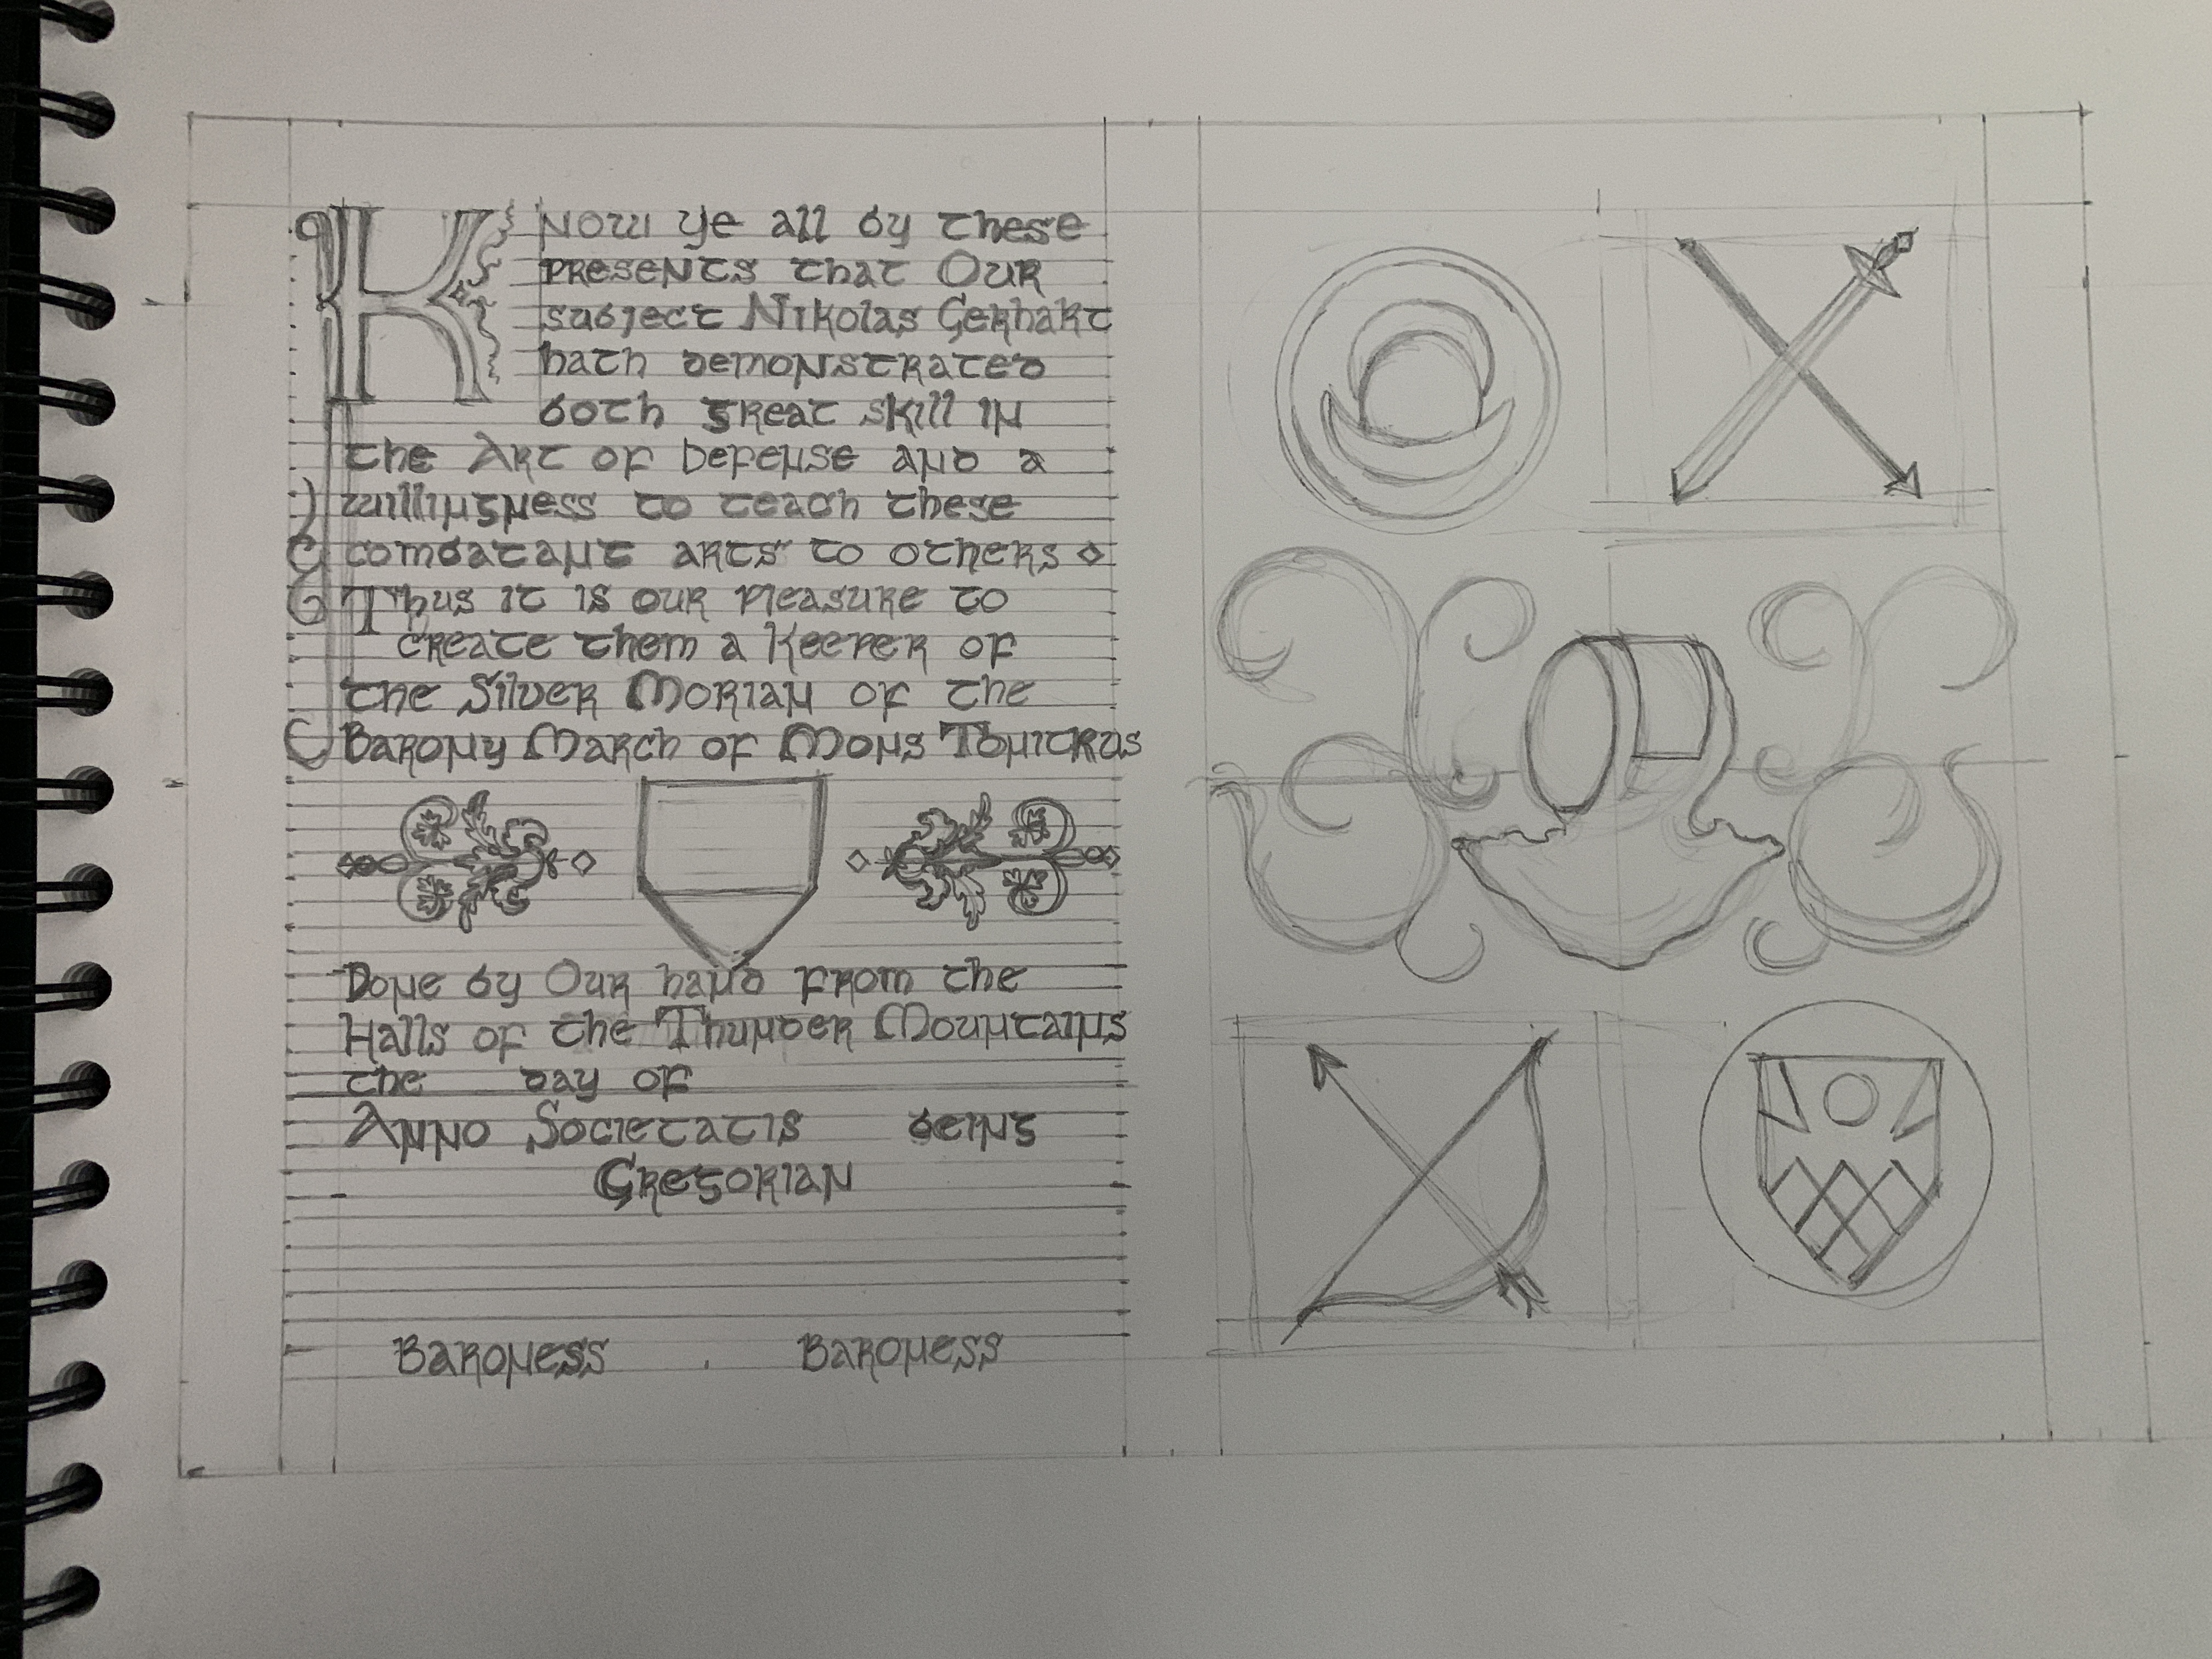 Know ye all by these
presents that Our
subject Nikolas Gerhart
hath demonstrated
both great skill in
the Art of Defense and a
willingness to teach these
combatant arts to others
Thus it is our pleasure to
create them a Keeper of
the Silver Morian of the
Barony March of Mons Tonitrus
Done by Our hand from the
Halls of the Thunder Mountains
the day of
Anno Societatis being
Gregorian
Baroness Baroness